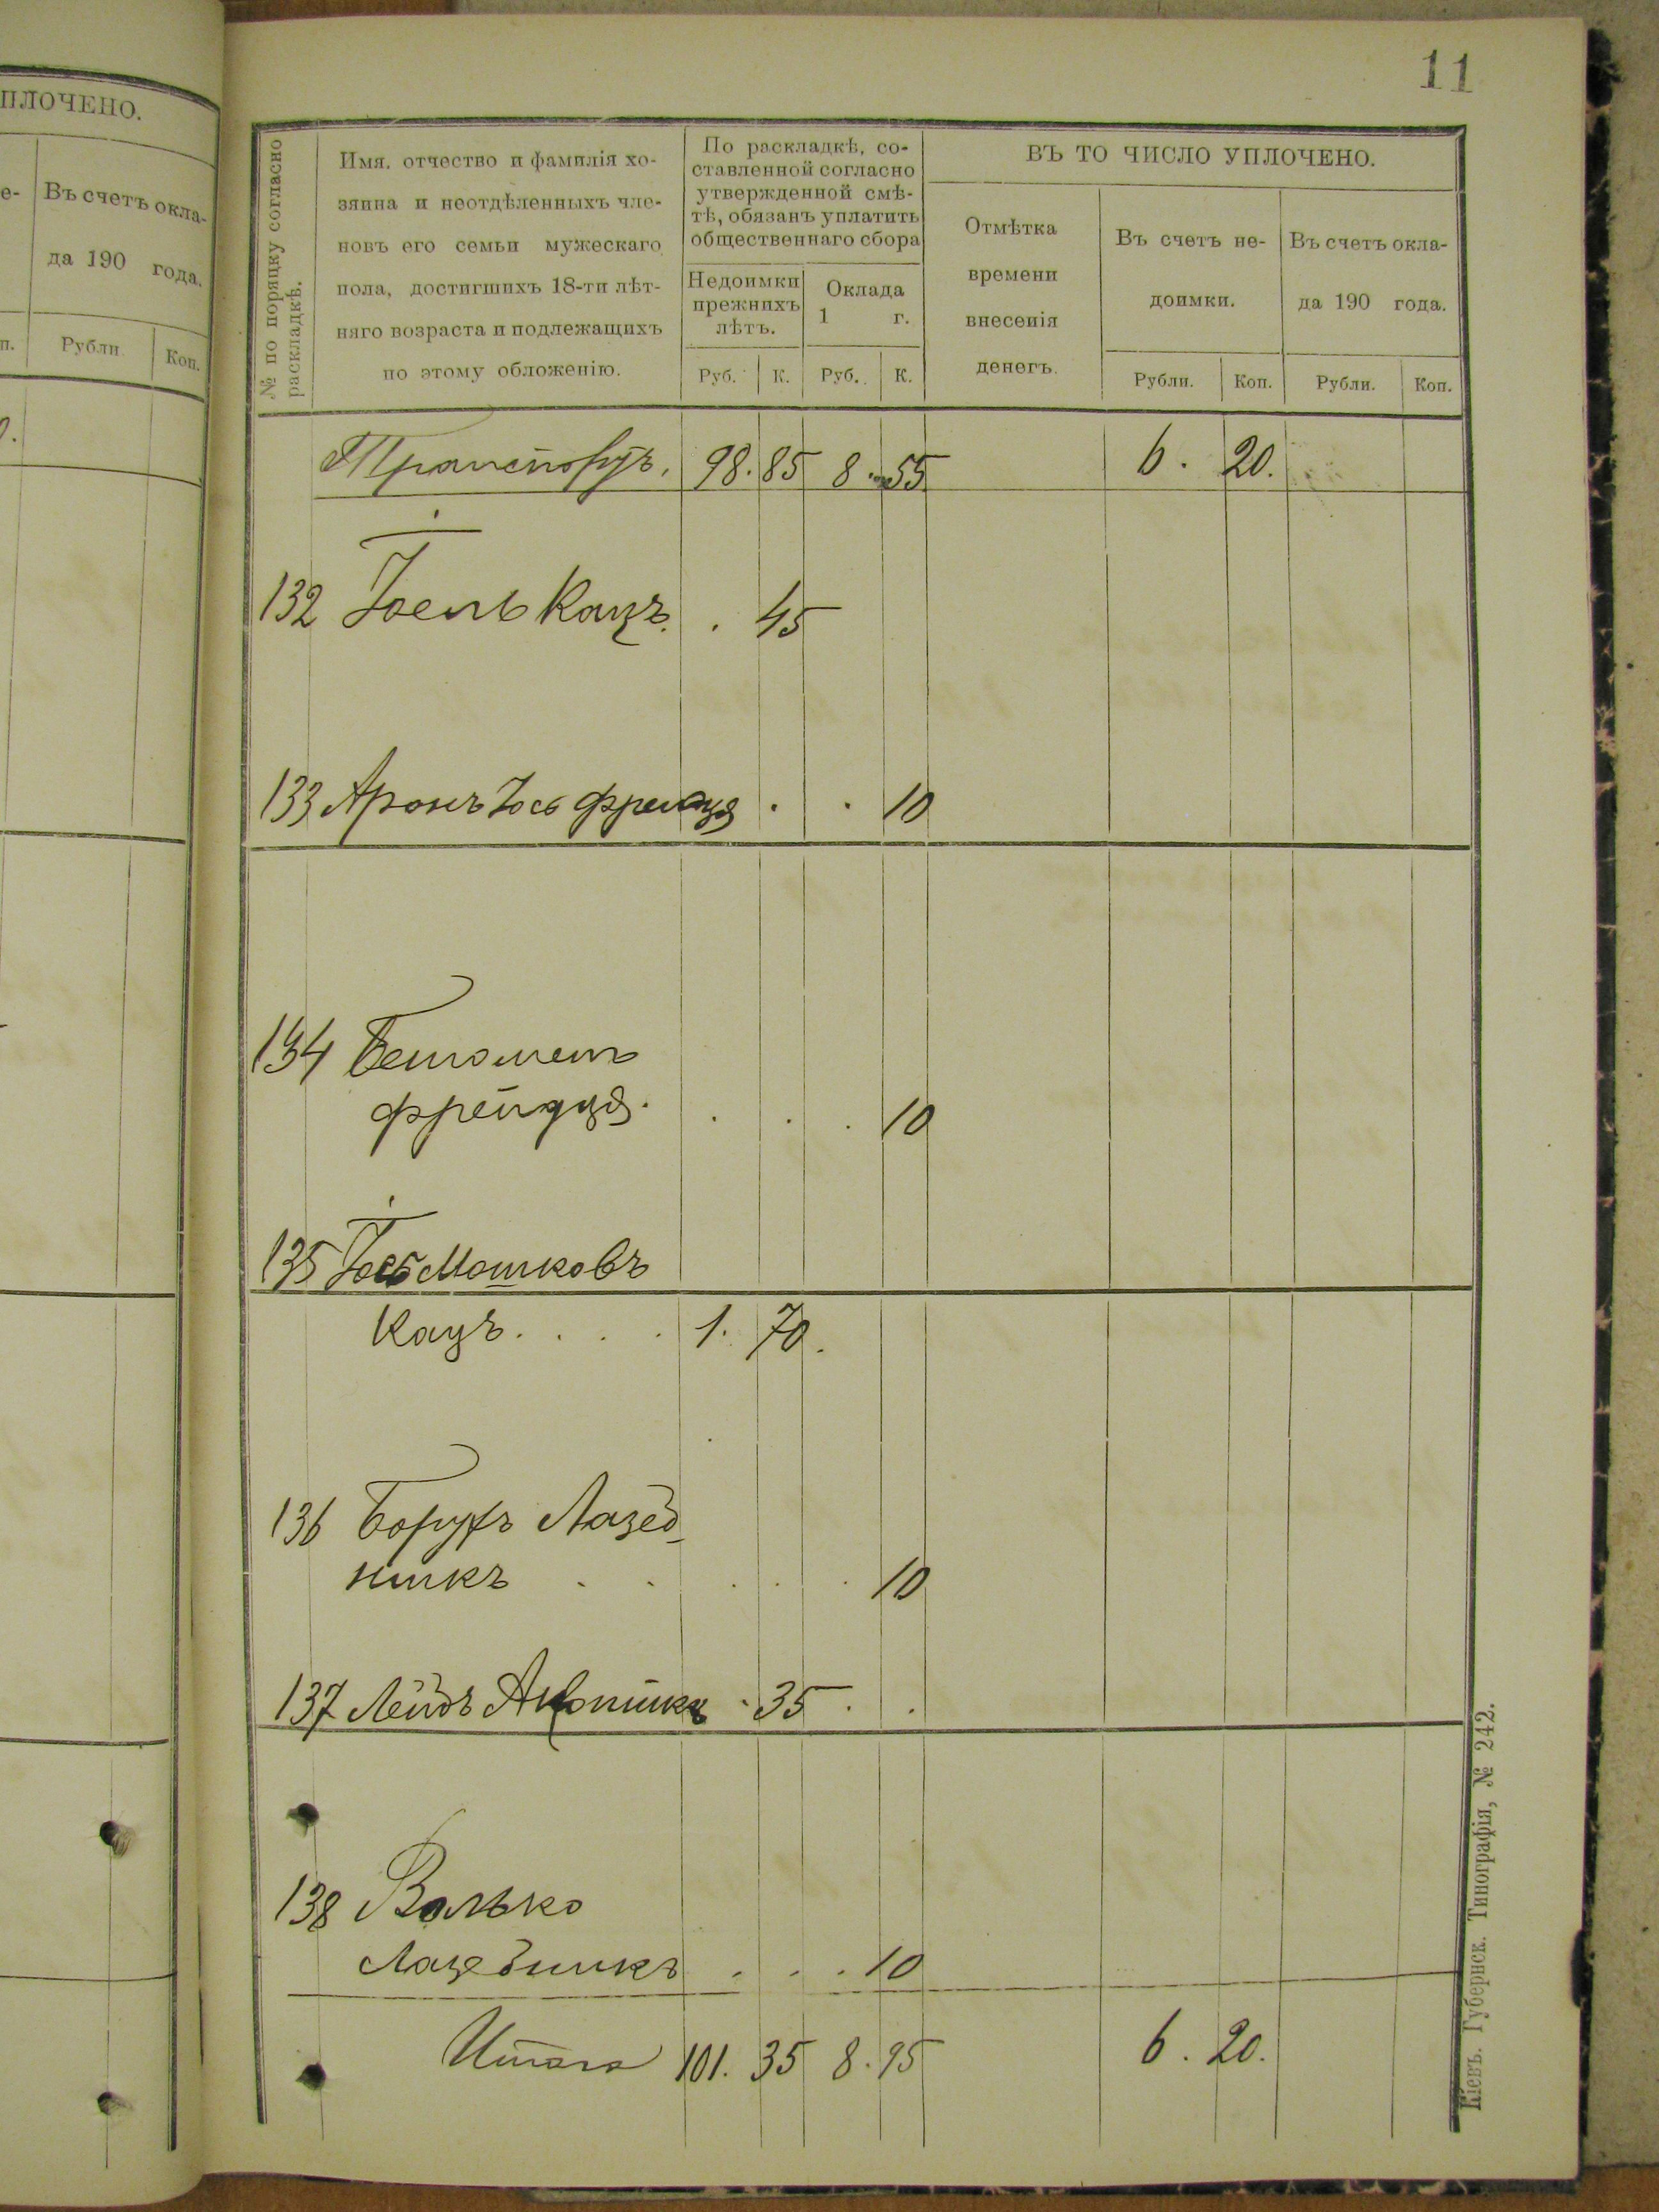 11
ПЛОЧЕНО.
Въ счетъ окла-
да 190 года.
Рубли
Коп.
№ по поряцку согласно
раскладкѣ.
Имя. отчество и фамилія хо-
зяина и неотдѣленныхъ чле-
новъ его семьи мужескаго
пола, достигшихъ 18-ти лѣт-
няго возраста и подлежащихъ
по этому обложенію.
По раскладкѣ, со-
ставленной согласно
утвержденной смѣ-
тѣ, обязанъ уплатить
общественнаго сбора
Недоимки
прежнихъ
лѣтъ.
Оклада
1 г.
Руб. К. Руб. К.
ВЪ ТО ЧИСЛО УПЛОЧЕНО.
Отмѣтка
времени
внесенія
денегъ.
Въ счетъ не-
доимки.
Въ счетъ окла-
да 190 года.
Рубли. Коп. Рубли. Коп.
Транспортъ. 98. 85 8. 55 6. 20.
132 Іоель Кацъ. . 45
133 Аронъ Іось . . 10
134
. . . 10
135 Іось Мошковъ
Кацъ. . . . 1. 70.
136 Борухъ Лазеб-
никъ . . . . . 10
137 Лейбъ . 35 . .
138 Волько
Лазебникъ . . . 10
Итого 101. 35 8. 95 6. 20.
Кіевъ. Губернск. Типографія, № 242.